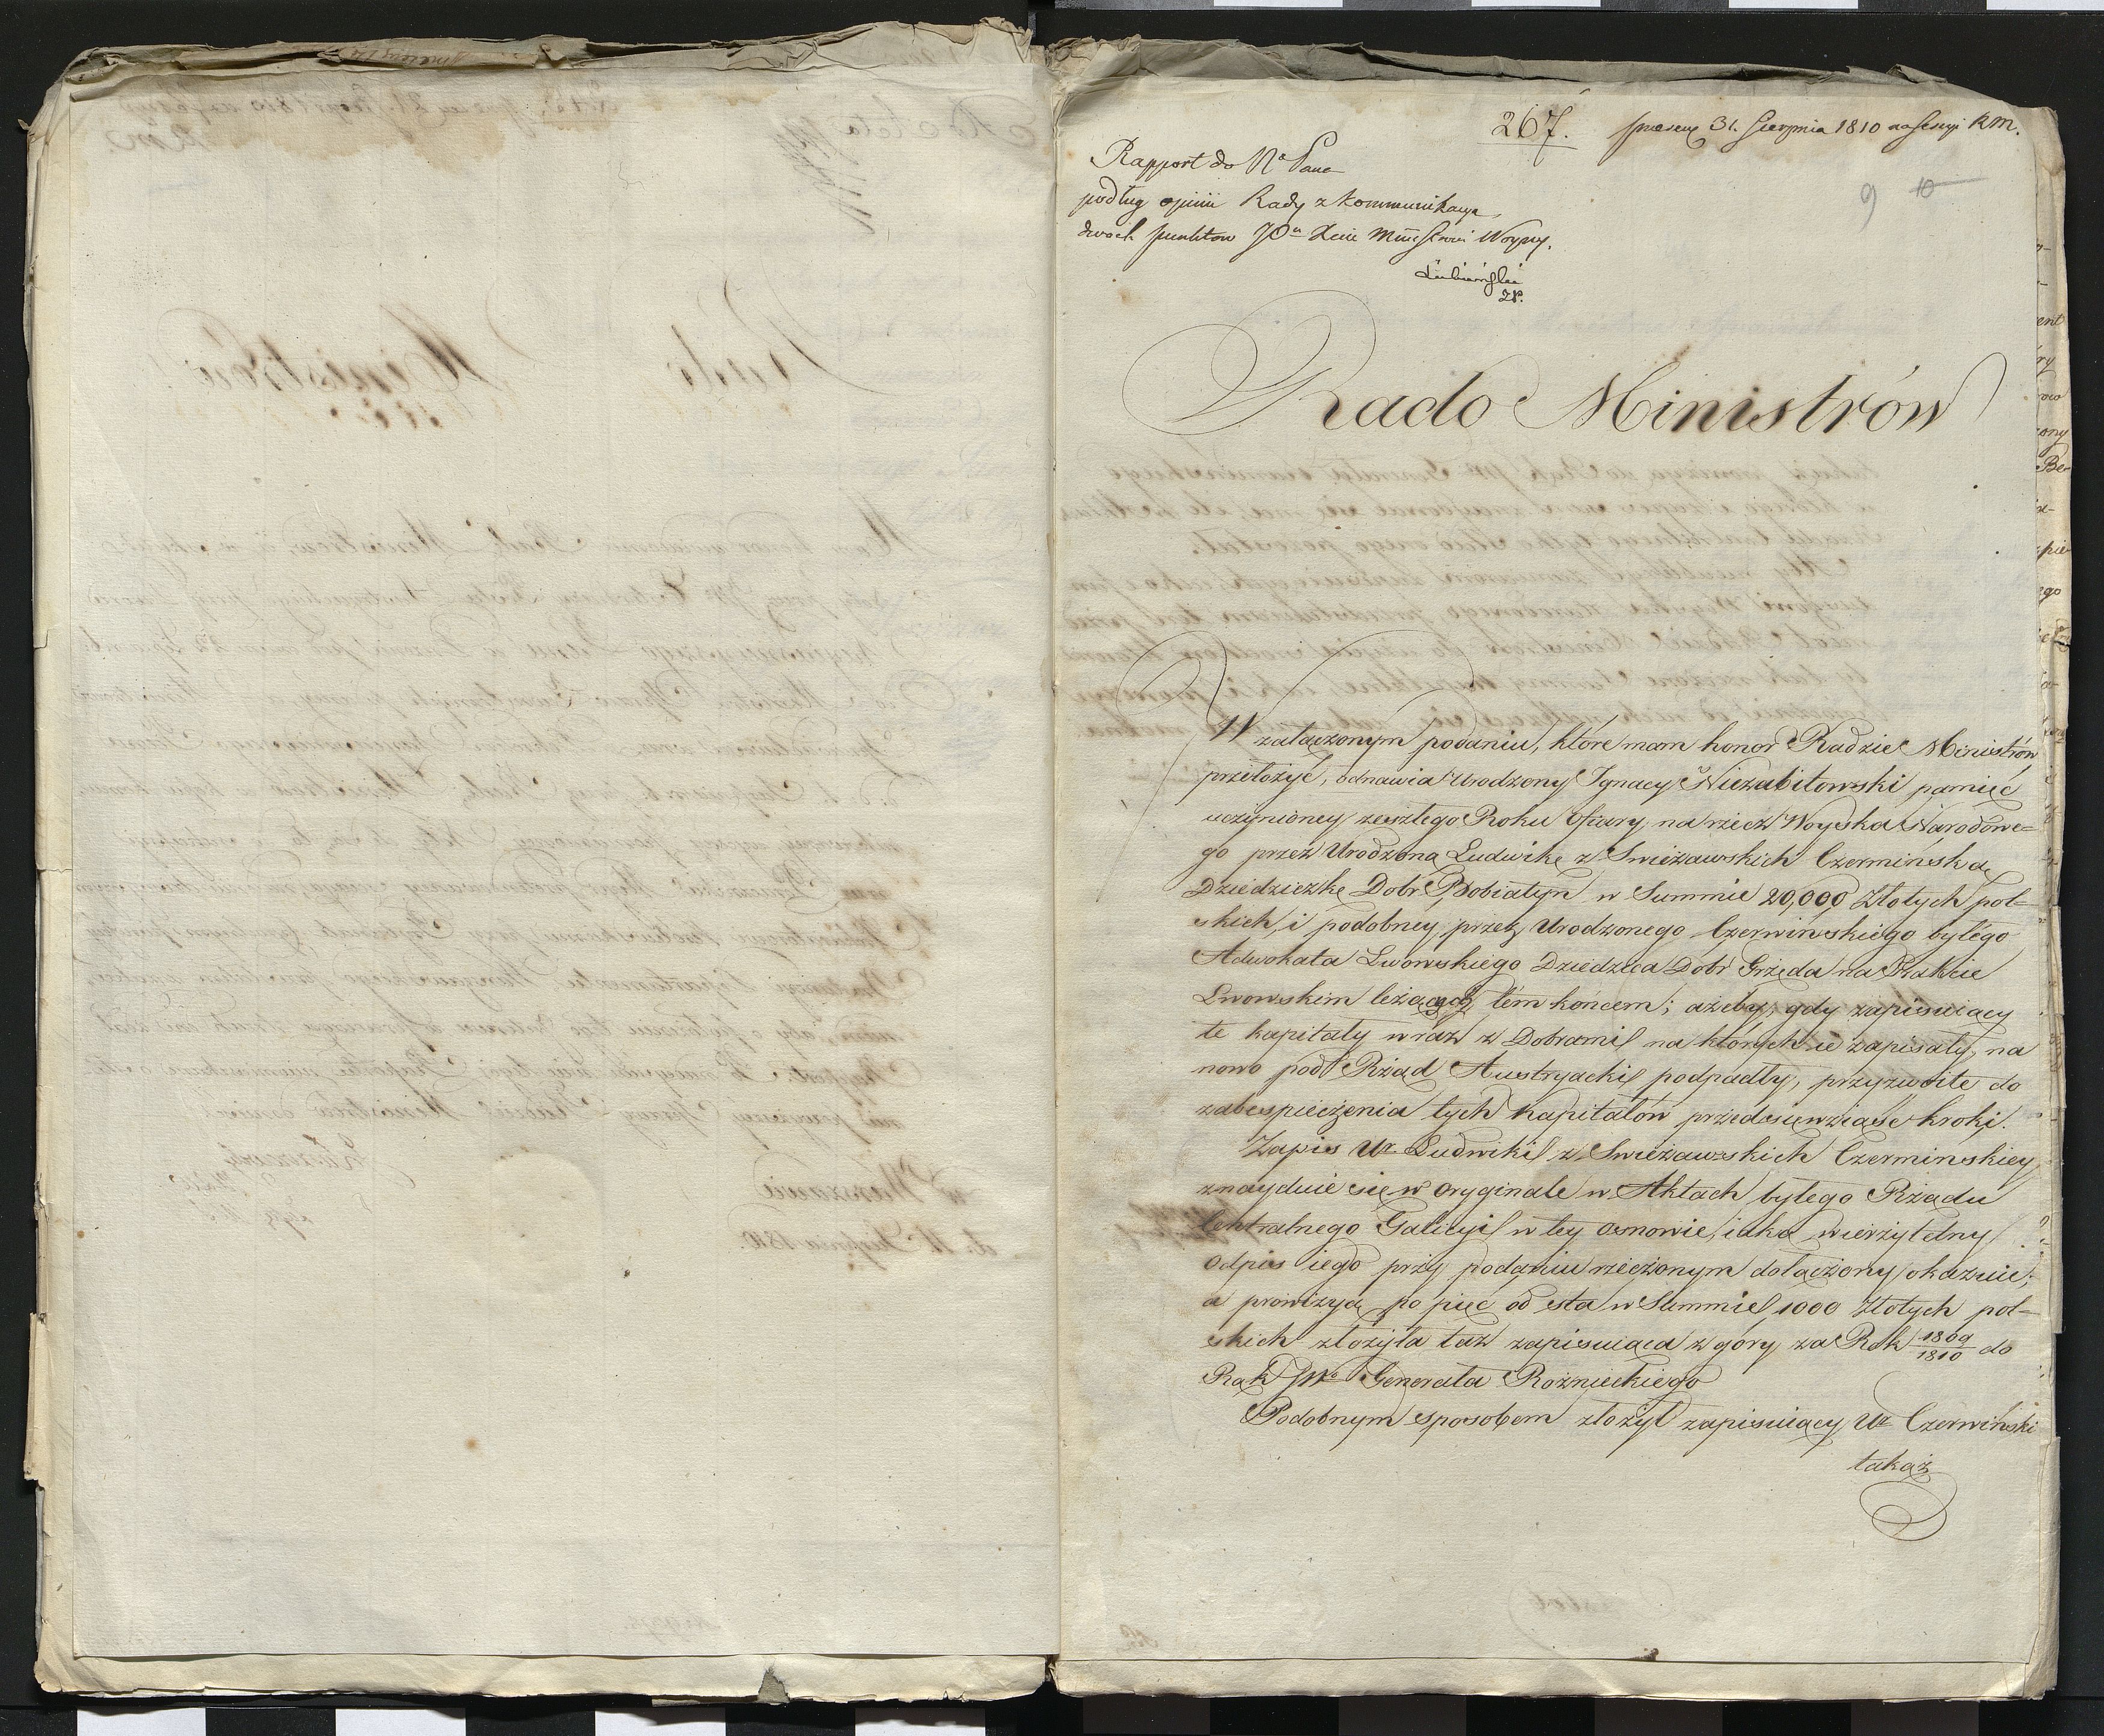 267. praesent 31. Sierpnia 1810 na Sessyi RM.
9 10
Rapport do Nº Pana
podług opinii Rady z kommunikacyą
dwóch punktów JOu Xciu Ministrowi Woyny.
Łubieński
Rado Ministrów
W załączonym podaniu, które mam honor Radzie Ministrów
przełożyć, odnawia Urodzony Ignacy Niezabitowski pamięć
uczynioney zeszłego Roku Ofiary na rzecz Woyska Narodowe=
go przez Urodzoną Ludwikę z Swieżawskich Czermińską
Dziedziczkę Dobr Bobiatyn w Summie 20,000 Złotych pol=
skich, i podobney przez Urodzonego Czerwińskiego byłego
Adwokata Lwowskiego Dziedzica Dobr Grzęda na Trakcie
Lwowskim leżących tém końcem; ażeby, gdy zapisuiący
te kapitały wraz z Dobrami na których ie zapisały, na
nowo pod Rząd Austryacki podpadły, przyzwoite do
zabespieczenia tych kapitałów przedsięwziąść kroki.
Zapis Ur. Ludwiki z Swieżawskich Czerminskiey
znayduie się w oryginale w Aktach byłego Rządu
Centralnego Galicyi w tey osnowie, iaką wierzytelny
odpis iego przy podaniu rzeczonym dołączony okazuie;
a prowizyą po pięć od sta w Summie 1000 Złotych pol=
skich złożyła taż zapisuiąca z góry za Rok 1809/1810 do
Rąk JWo Generała Rożnieckiego
Podobnym sposobem złożył zapisuiący Ur Czerwiński
takąż